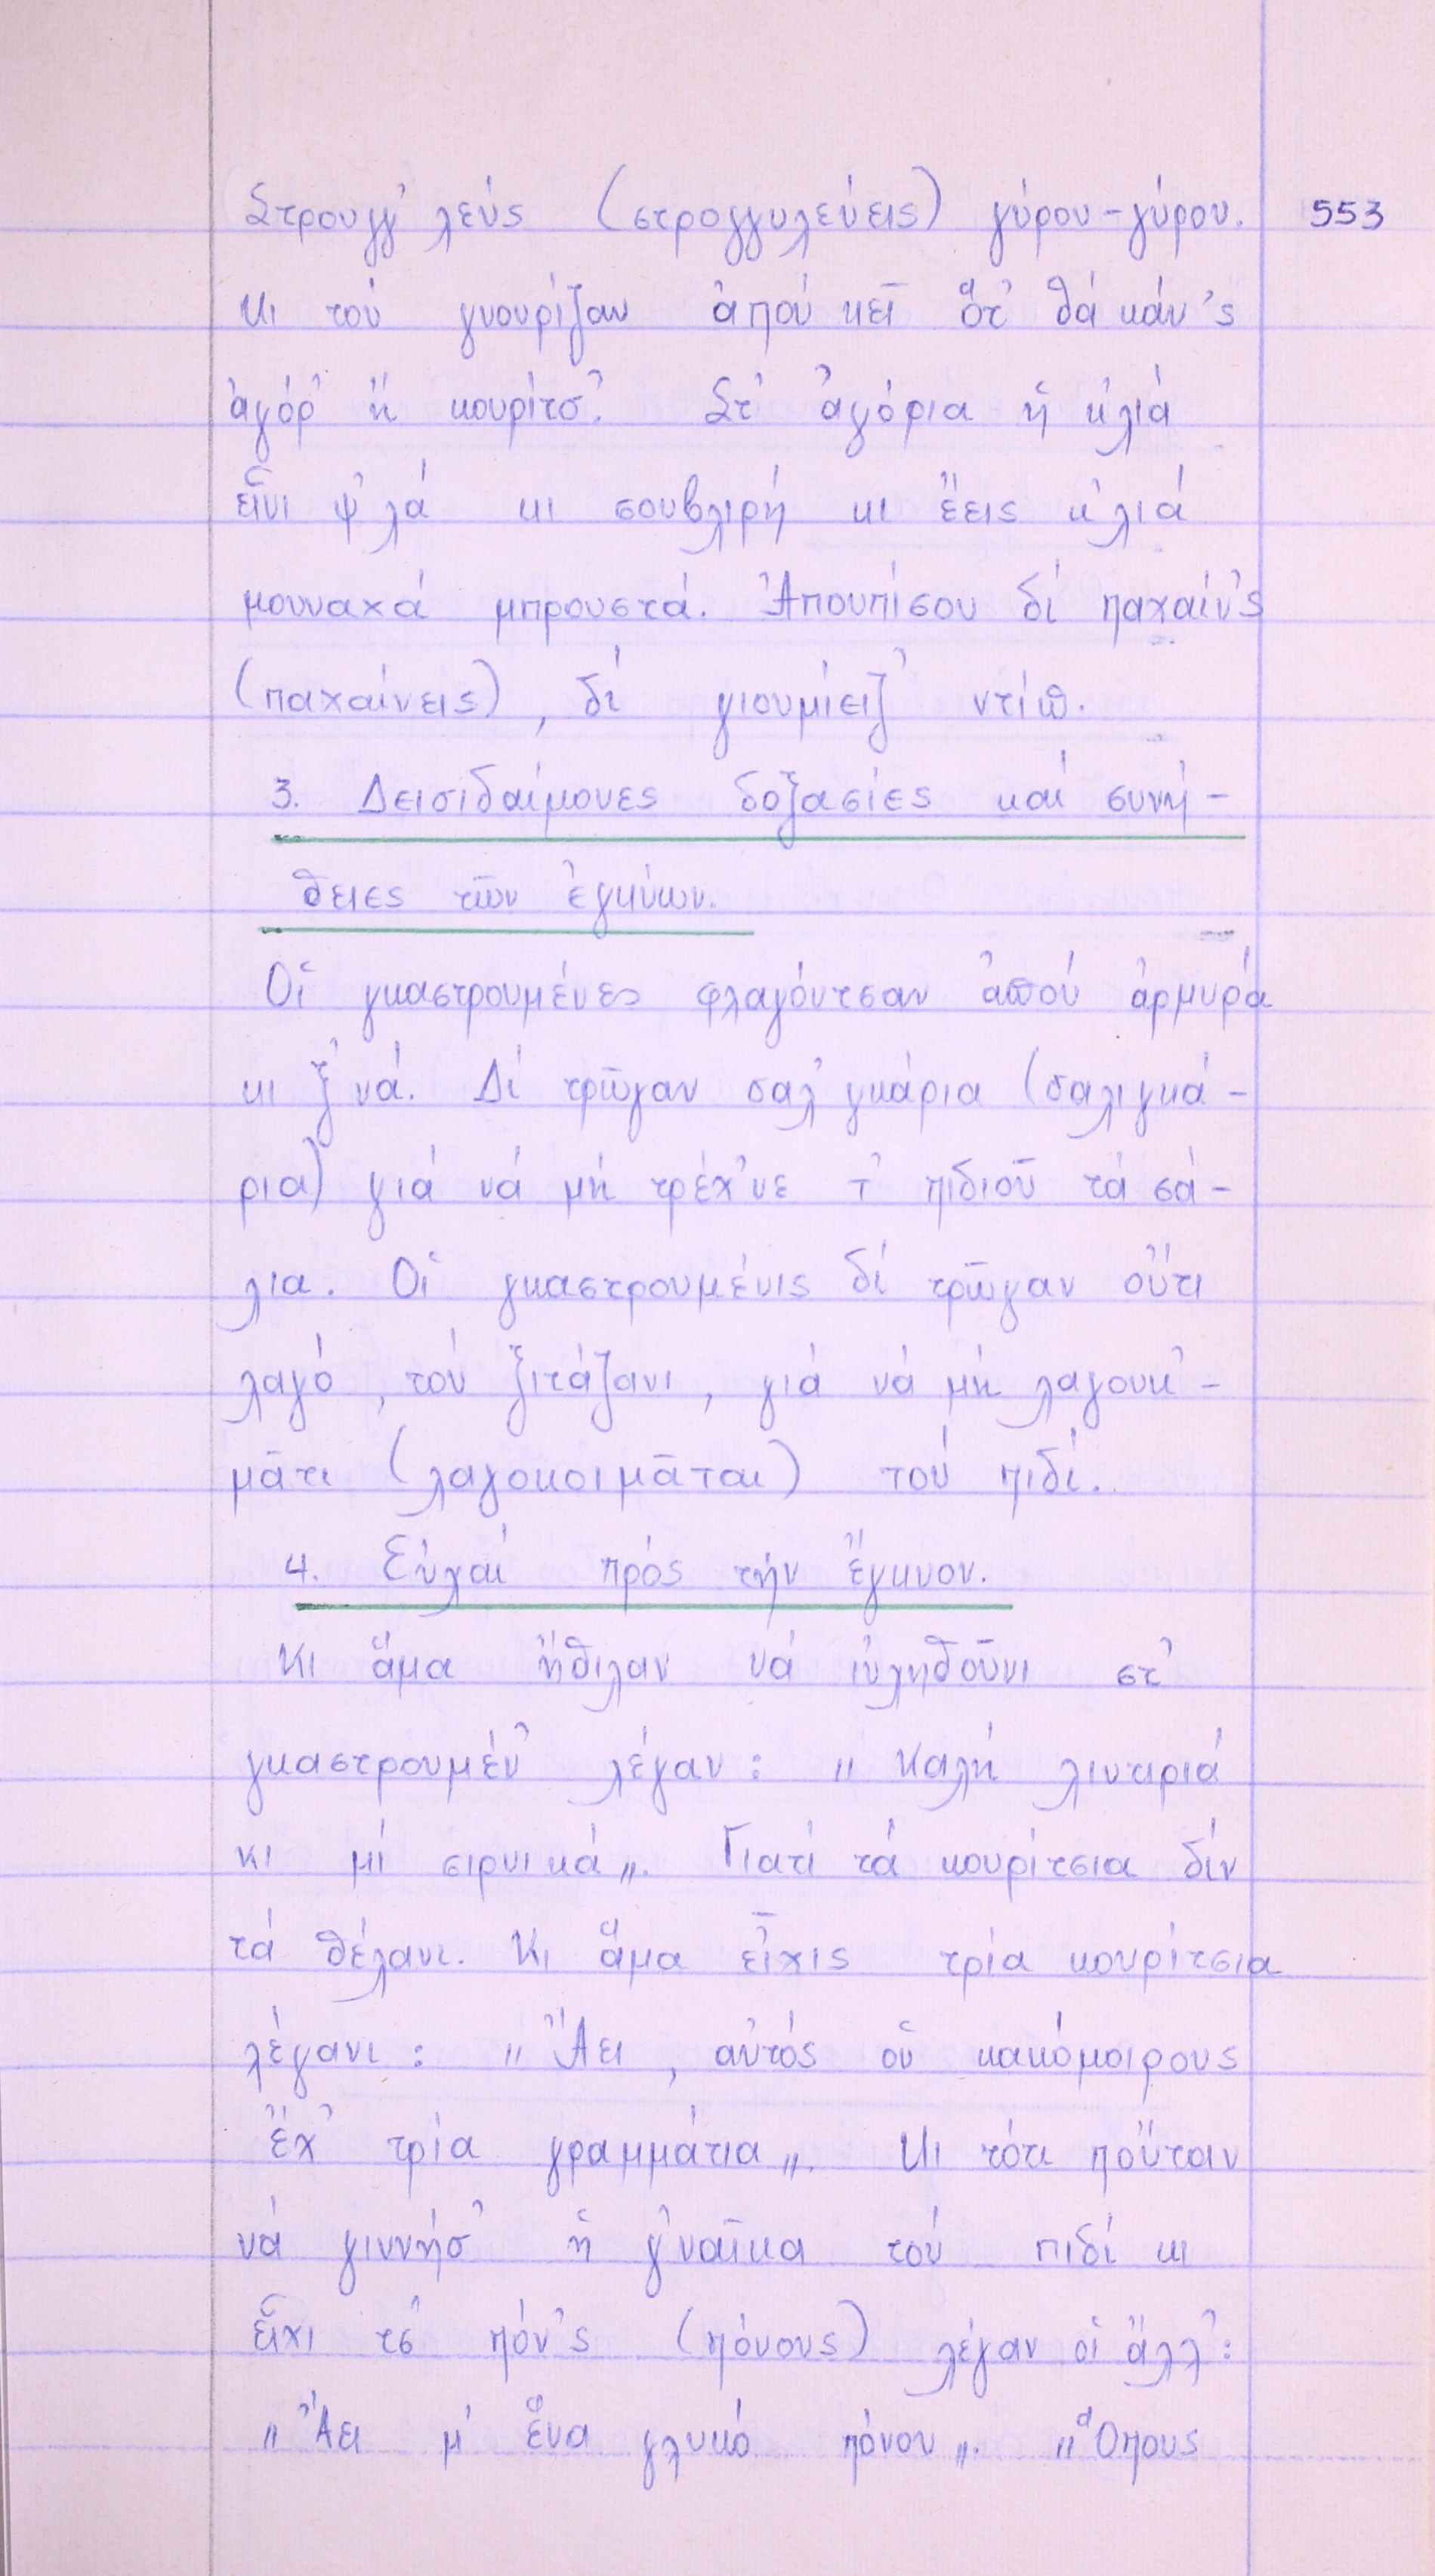 Στρουγγ' λεύς (στρογγυλεύεις) γύρου-γύρου. 553
κι τού γνουρίζαν ἀπού κεῖ ὅτ' θά κάν'ς
ἀγόρ' ἤ κουρίτσ'. Στ' ἀγόρια ἡ κ'λιά
εἶνι ψ'λά κι σουβλιρή κι ἔεις κ'λιά
μουναχά μπρουστά. Ἀπουπίσου δί παχαίν'ς
(παχαίνεις), δί γιουμίειζ' ντίπ.
3. Δεισιδαίμονες δοξασίες καί συνή-
θειες τῶν ἐγκύων.
Οἱ γκαστρουμένες φλαγόντσαν ἀπού ἀρμυρά
κι ξ'νά. Δί τρῶγαν σαλ'γκάρια (σαλιγκά-
ρια) γιά νά μή τρέχ'νε τ' πιδιοῦ τά σά-
λια. Οἱ γκαστρουμένις δί τρῶγαν οὔτι
λαγό, τού ξιτάζανι, γιά νά μή λαγουκ'-
μᾶτι (λαγοκοιμᾶται) τού πιδί.
4. Εὐχαί πρός τήν ἔγκυον.
Κι ἅμα ἤθιλαν νά ἰυχηθοῦνι στ'
γκαστρουμέν' λέγαν: „Καλή λιυτιριά
κι μί σιρνικά„. Γιατί τά κουρίτσια δίν
τά θέλανι. Κι ἅμα εἶχις τρία κουρίτσια
λέγανι: „Ἄει, αὐτός οὑ κακόμοιρους
ἔχ' τρία γραμμάτια„. Κι τότι ποὔταν
νά γιννήσ' ἡ γ'ναῖκα τού πιδί κι
εἶχι τσ' πόν'ς (πόνους) λέγαν οἱ ἄλλ':
„Ἄει μ' ἕνα γλυκό πόνου„. „Ὅπους